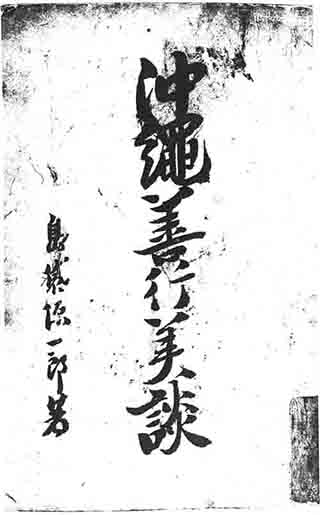 沖繩善行美談
島袋源一郎著